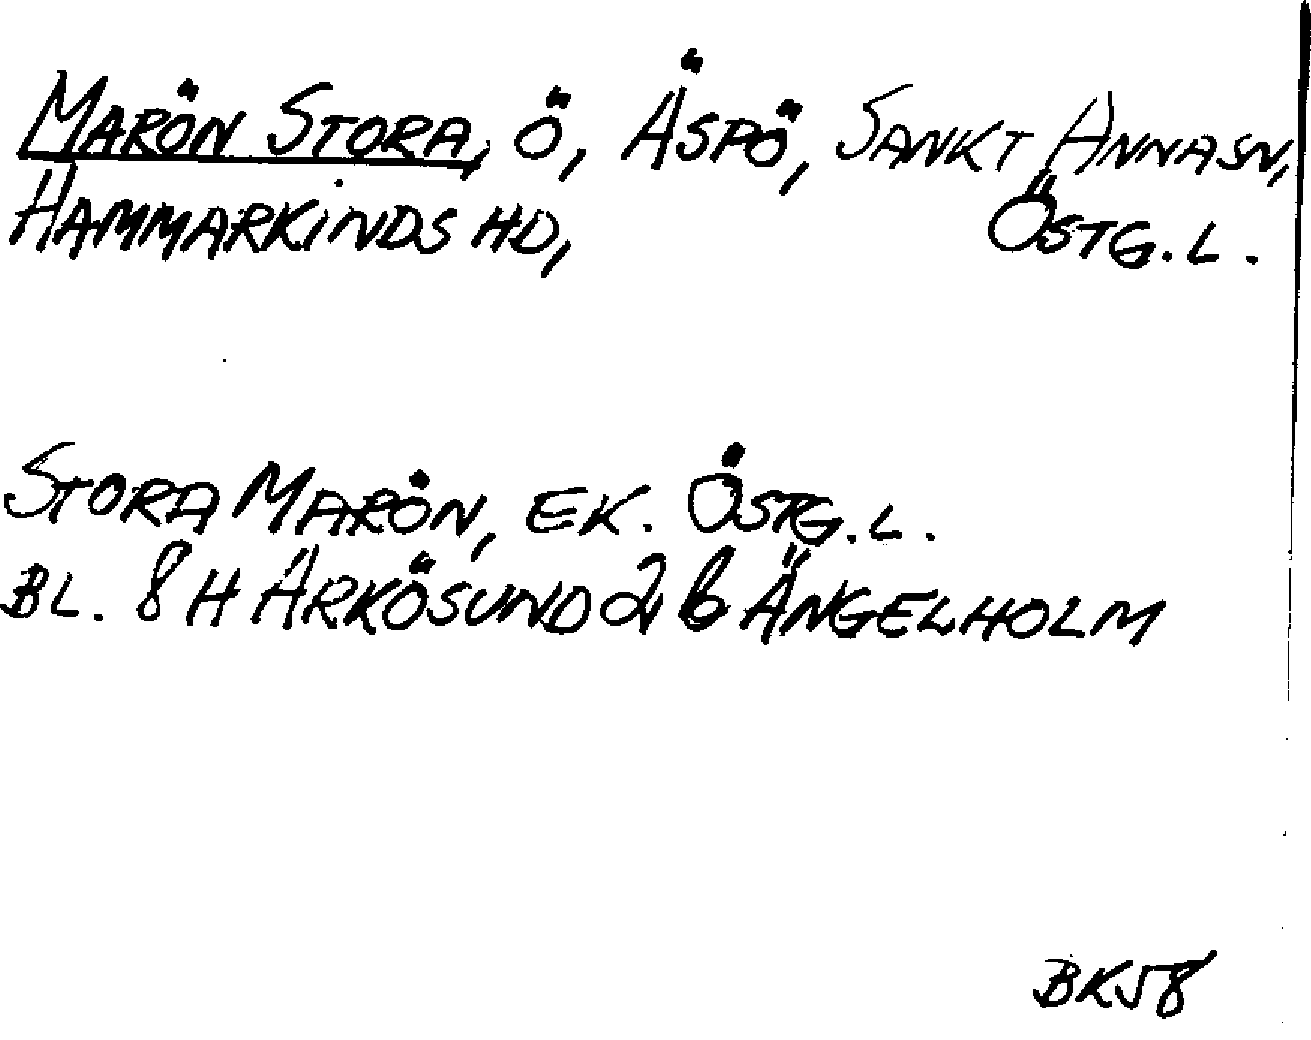 MARÖN STORA, Ö, ÄSPÖ, SANKT ANNASN,
HAMMARKINDS HD, ÖSTG. L.
STORA MARÖN, EK. ÖSTG. L.
BL. 8 H ARKÖSUND 2 b ÄNGELHOLM
BK58